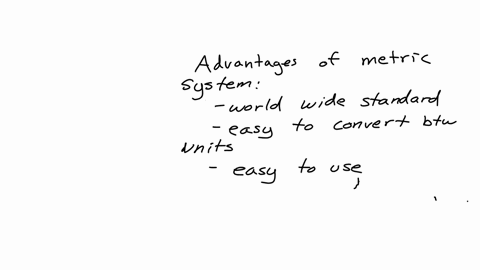 Advantages of metric
system:
- world wide standard
- easy to convert btw
units
- easy to use